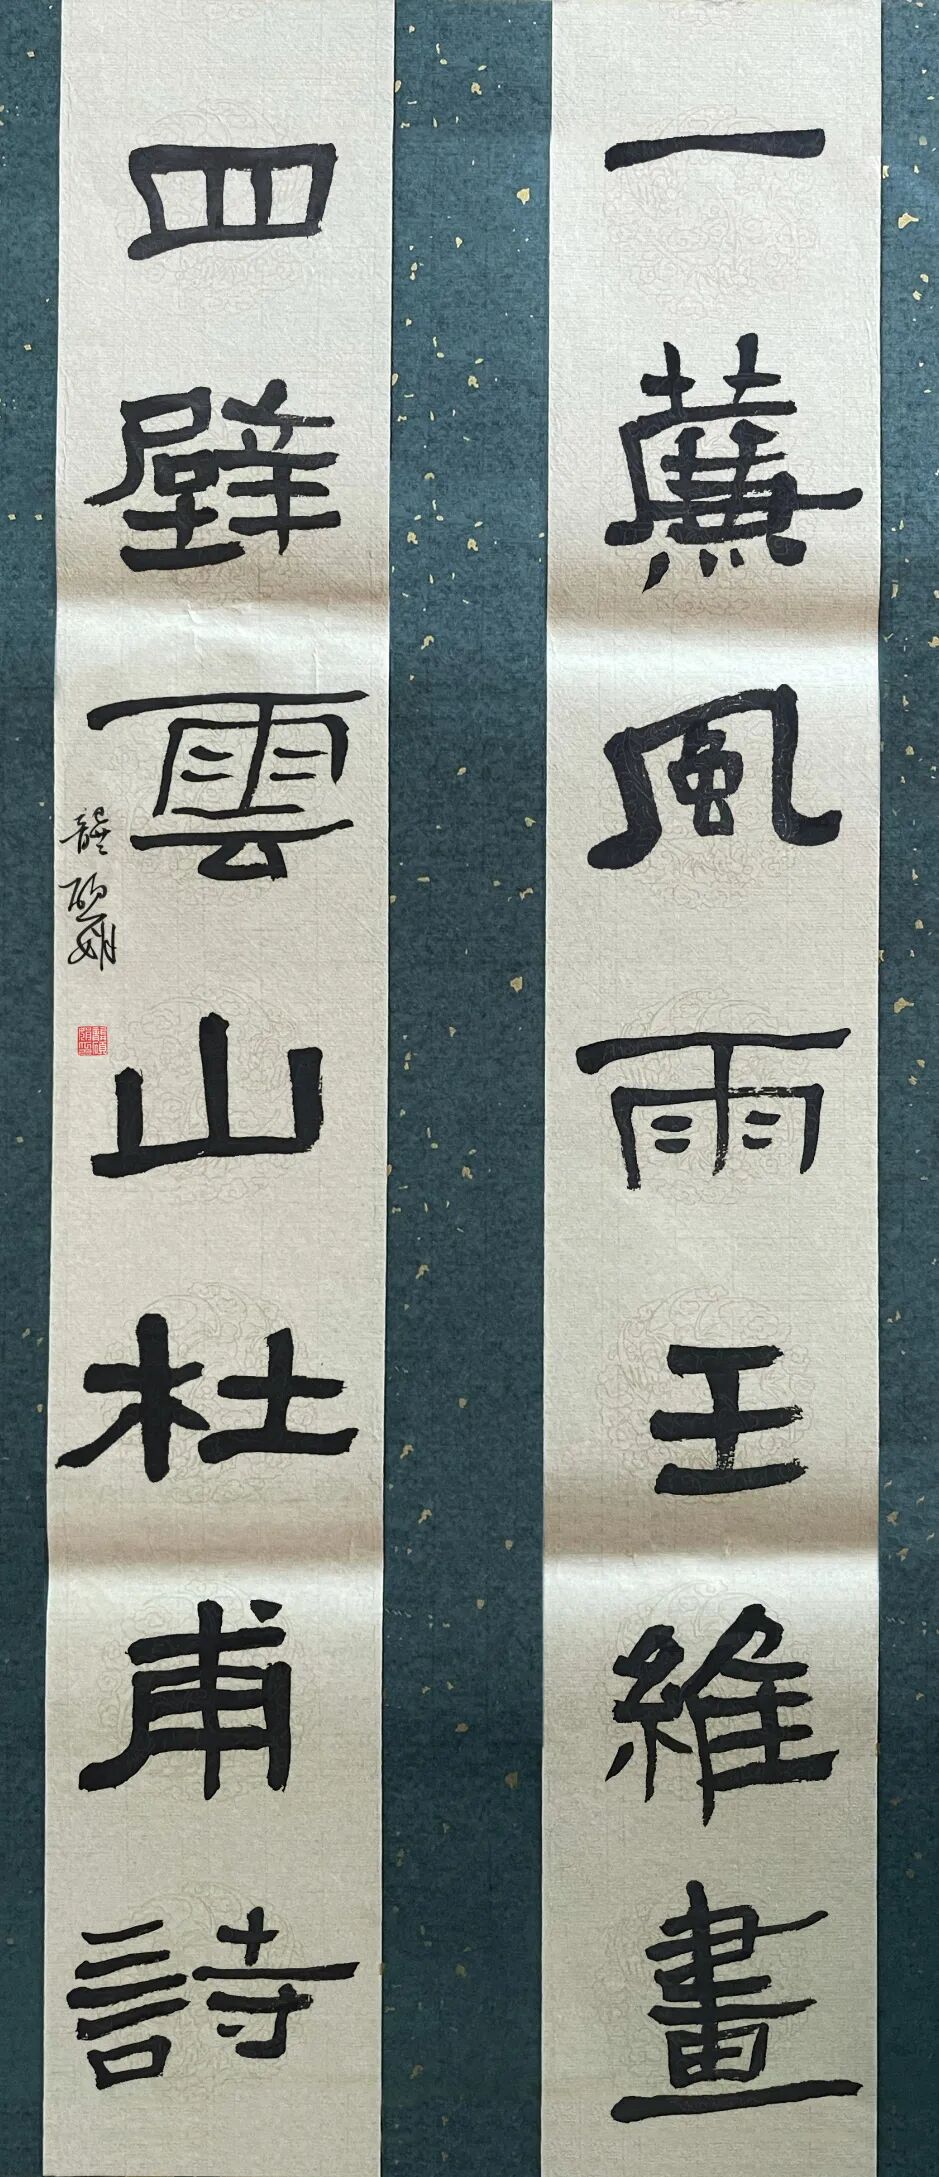 一薕風雨王維畫
四壁雲山杜甫詩
龔碩